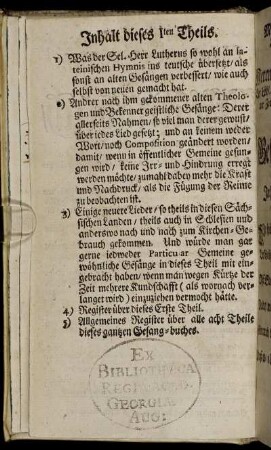 Inhalt dieses Iten Theils.
1) Was der Sel. Herr Lutherus so wohl an la-
teinischen Hymnis ins teutsche übersetzt/ als
sonst an alten Gesängen verbessert/ wie auch
selbst von neuen gemacht hat.
2) Andrer nach ihm gekommener alten Theolo-
gen und Bekenner geistliche Gesänge: Derer
allerseits Nahmen/ so viel man derer gewust/
über jedes Lied gesetzt; und an keinem weder
Wort/ noch Composition geändert worden/
damit/ wenn in öffentlicher Gemeine gesun-
gen wird/ keine Irr- und Hindrung erregt
werden möchte/ zumahl dabey mehr die Kraft
und Nachdruck/ als die Fügung der Reime
zu beobachten ist.
3) Einige neuere Lieder/ so theils in diesen Säch-
sischen Landen/ theils auch in Schlesien und
anderswo nach und nach zum Kirchen-Ge-
brauch gekommen. Und würde man gar
gerne iedweder Particular Gemeine ge-
wöhnliche Gesänge in dieses Theil mit ein-
gebracht haben/ wenn man wegen Kürtze der
Zeit mehrere Kundschafft (als wornach ver-
langet wird) einzuziehen vermocht hätte.
4) Register über dieses Erste Theil.
5) Allgemeines Register über alle acht Theile
dieses gantzen Gesang-buches.
EX
BIBLIOTHECA
REGIA ACAD.
GEORGIÆ
AUG: